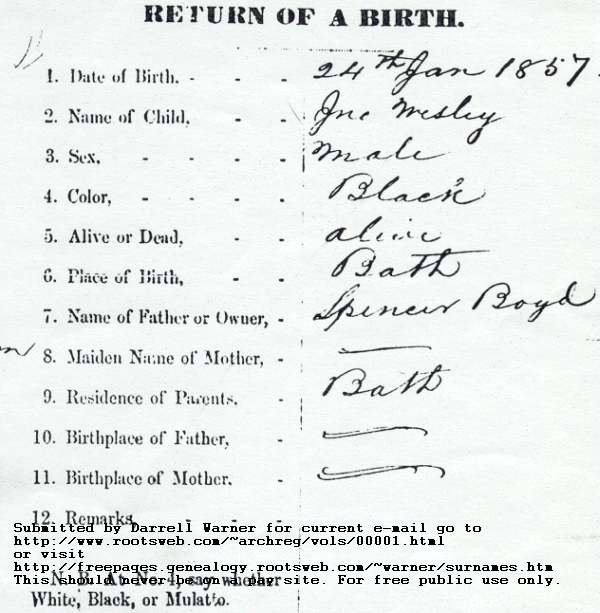 RETURN OF A BIRTH.
1. Date of Birth. - - - 24th Jan 1857.
2. Name of Child, - - Jno Wesley
3. Sex, - - - - Male
4. Color, - - - - Black
5. Alive or Dead, - - alive
6. Place of Birth, - - Bath
7. Name of Father or Owner, - Spencer Boyd
8. Maiden Name of Mother, - —
9. Residence of Parents, - Bath
10. Birthplace of Father, - —
11. Birthplace of Mother. - —
12. Remarks, - - -
Submitted by Darrell Warner for current e-mail go to
http://www.rootsweb.com/~archreg/vols/00001.html
or visit
http://freepages.genealogy.rootsweb.com/~warner/surnames.htm
This should never be on a pay site. For free public use only.
N. B. At No. 4, say whether
White, Black, or Mulatto.